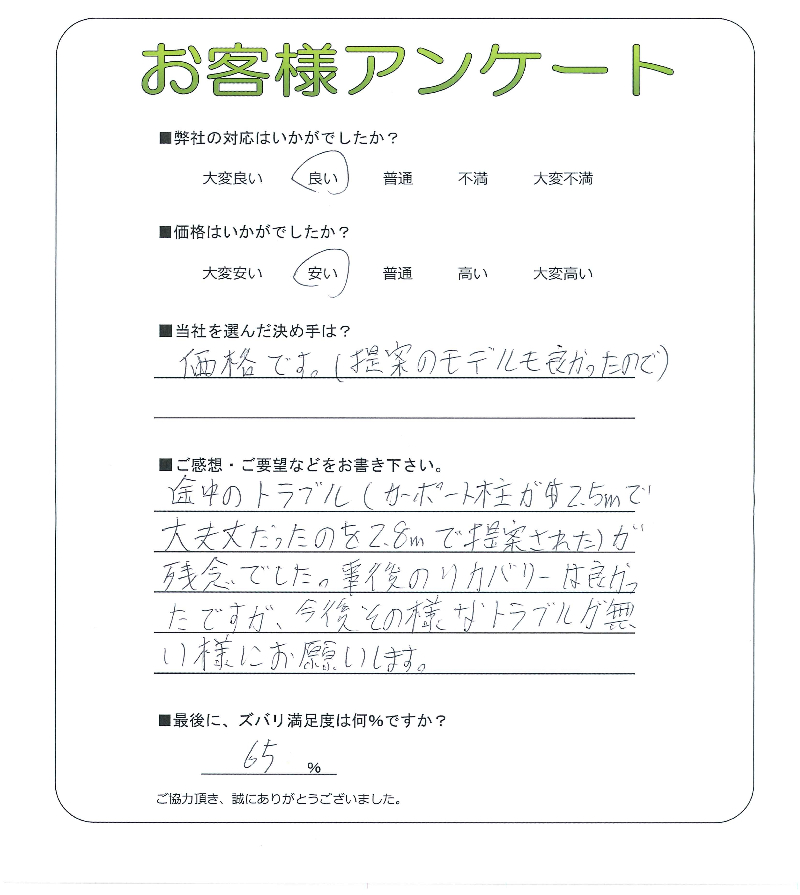 お客様アンケート
■弊社の対応はいかがでしたか？
大変良い 良い 普通 不満 大変不満
■価格はいかがでしたか？
大変安い 安い 普通 高い 大変高い
■当社を選んだ決め手は？
価格です。(提案のモデルも良かったので)
■ご感想・ご要望などをお書き下さい。
途中のトラブル(カーポート柱が 2.5mで
大丈夫だったのを2.8mで提案された)が
残念でした。事後のリカバリーは良かっ
たですが、今後その様なトラブルが無
い様にお願いします。
■最後に、ズバリ満足度は何%ですか？
65 %
ご協力頂き、誠にありがとうございました。